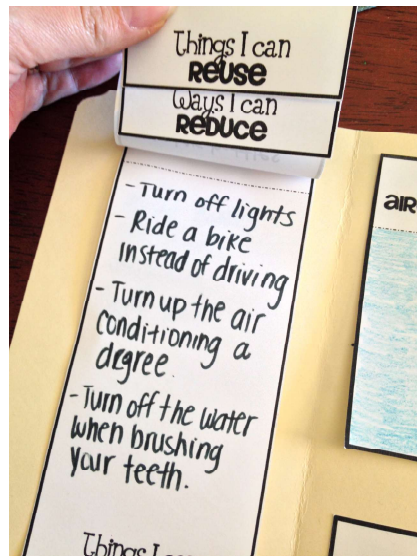 Things I can
REUSE
Ways I can
REDUCE
- Turn off lights
- Ride a bike
instead of driving
- Turn up the air
conditioning a
degree.
- Turn off the water
when brushing
your teeth.
Things I
AIR